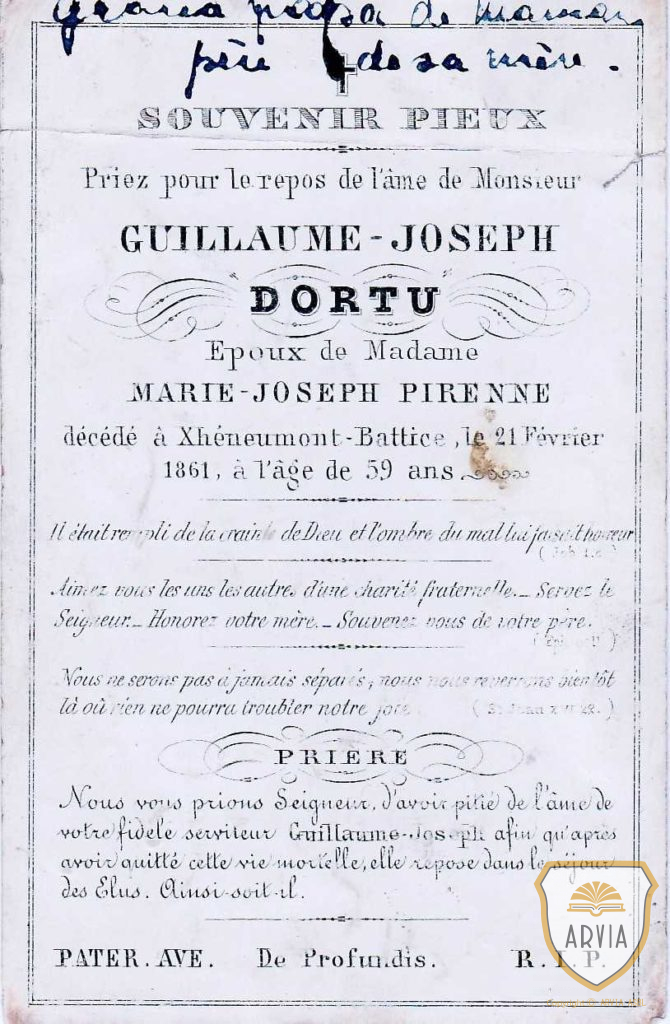 grand papa de maman
père de sa mère.
SOUVENIR PIEUX
Priez pour le repos de l'âme de Monsieur
GUILLAUME-JOSEPH
DORTU
Epoux de Madame
MARIE-JOSEPH PIRENNE
décédé à Xhéneumont-Battice, le 21 Février
1861, à l'âge de 59 ans.
Il était rempli de la crainte de Dieu et l'ombre du mal lui faisait horreur
(Job
Aimez vous les uns les autres d'une charité fraternelle._ Servez le
Seigneur._ Honorez votre mère._ Souvenez vous de votre père.
Nous ne serons pas à jamais séparés; nous nous reverrons bientôt
là où rien ne pourra troubler notre joie. (S. Jean
PRIÈRE
Nous vous prions Seigneur, d'avoir pitié de l'âme de
votre fidele serviteur Guillaume-Joseph afin qu'après
avoir quitté cette vie mortelle, elle repose dans le séjour
des Elus. Ainsi-soit-il.
PATER. AVE. De Profundis. R.I.P.
ARVIA